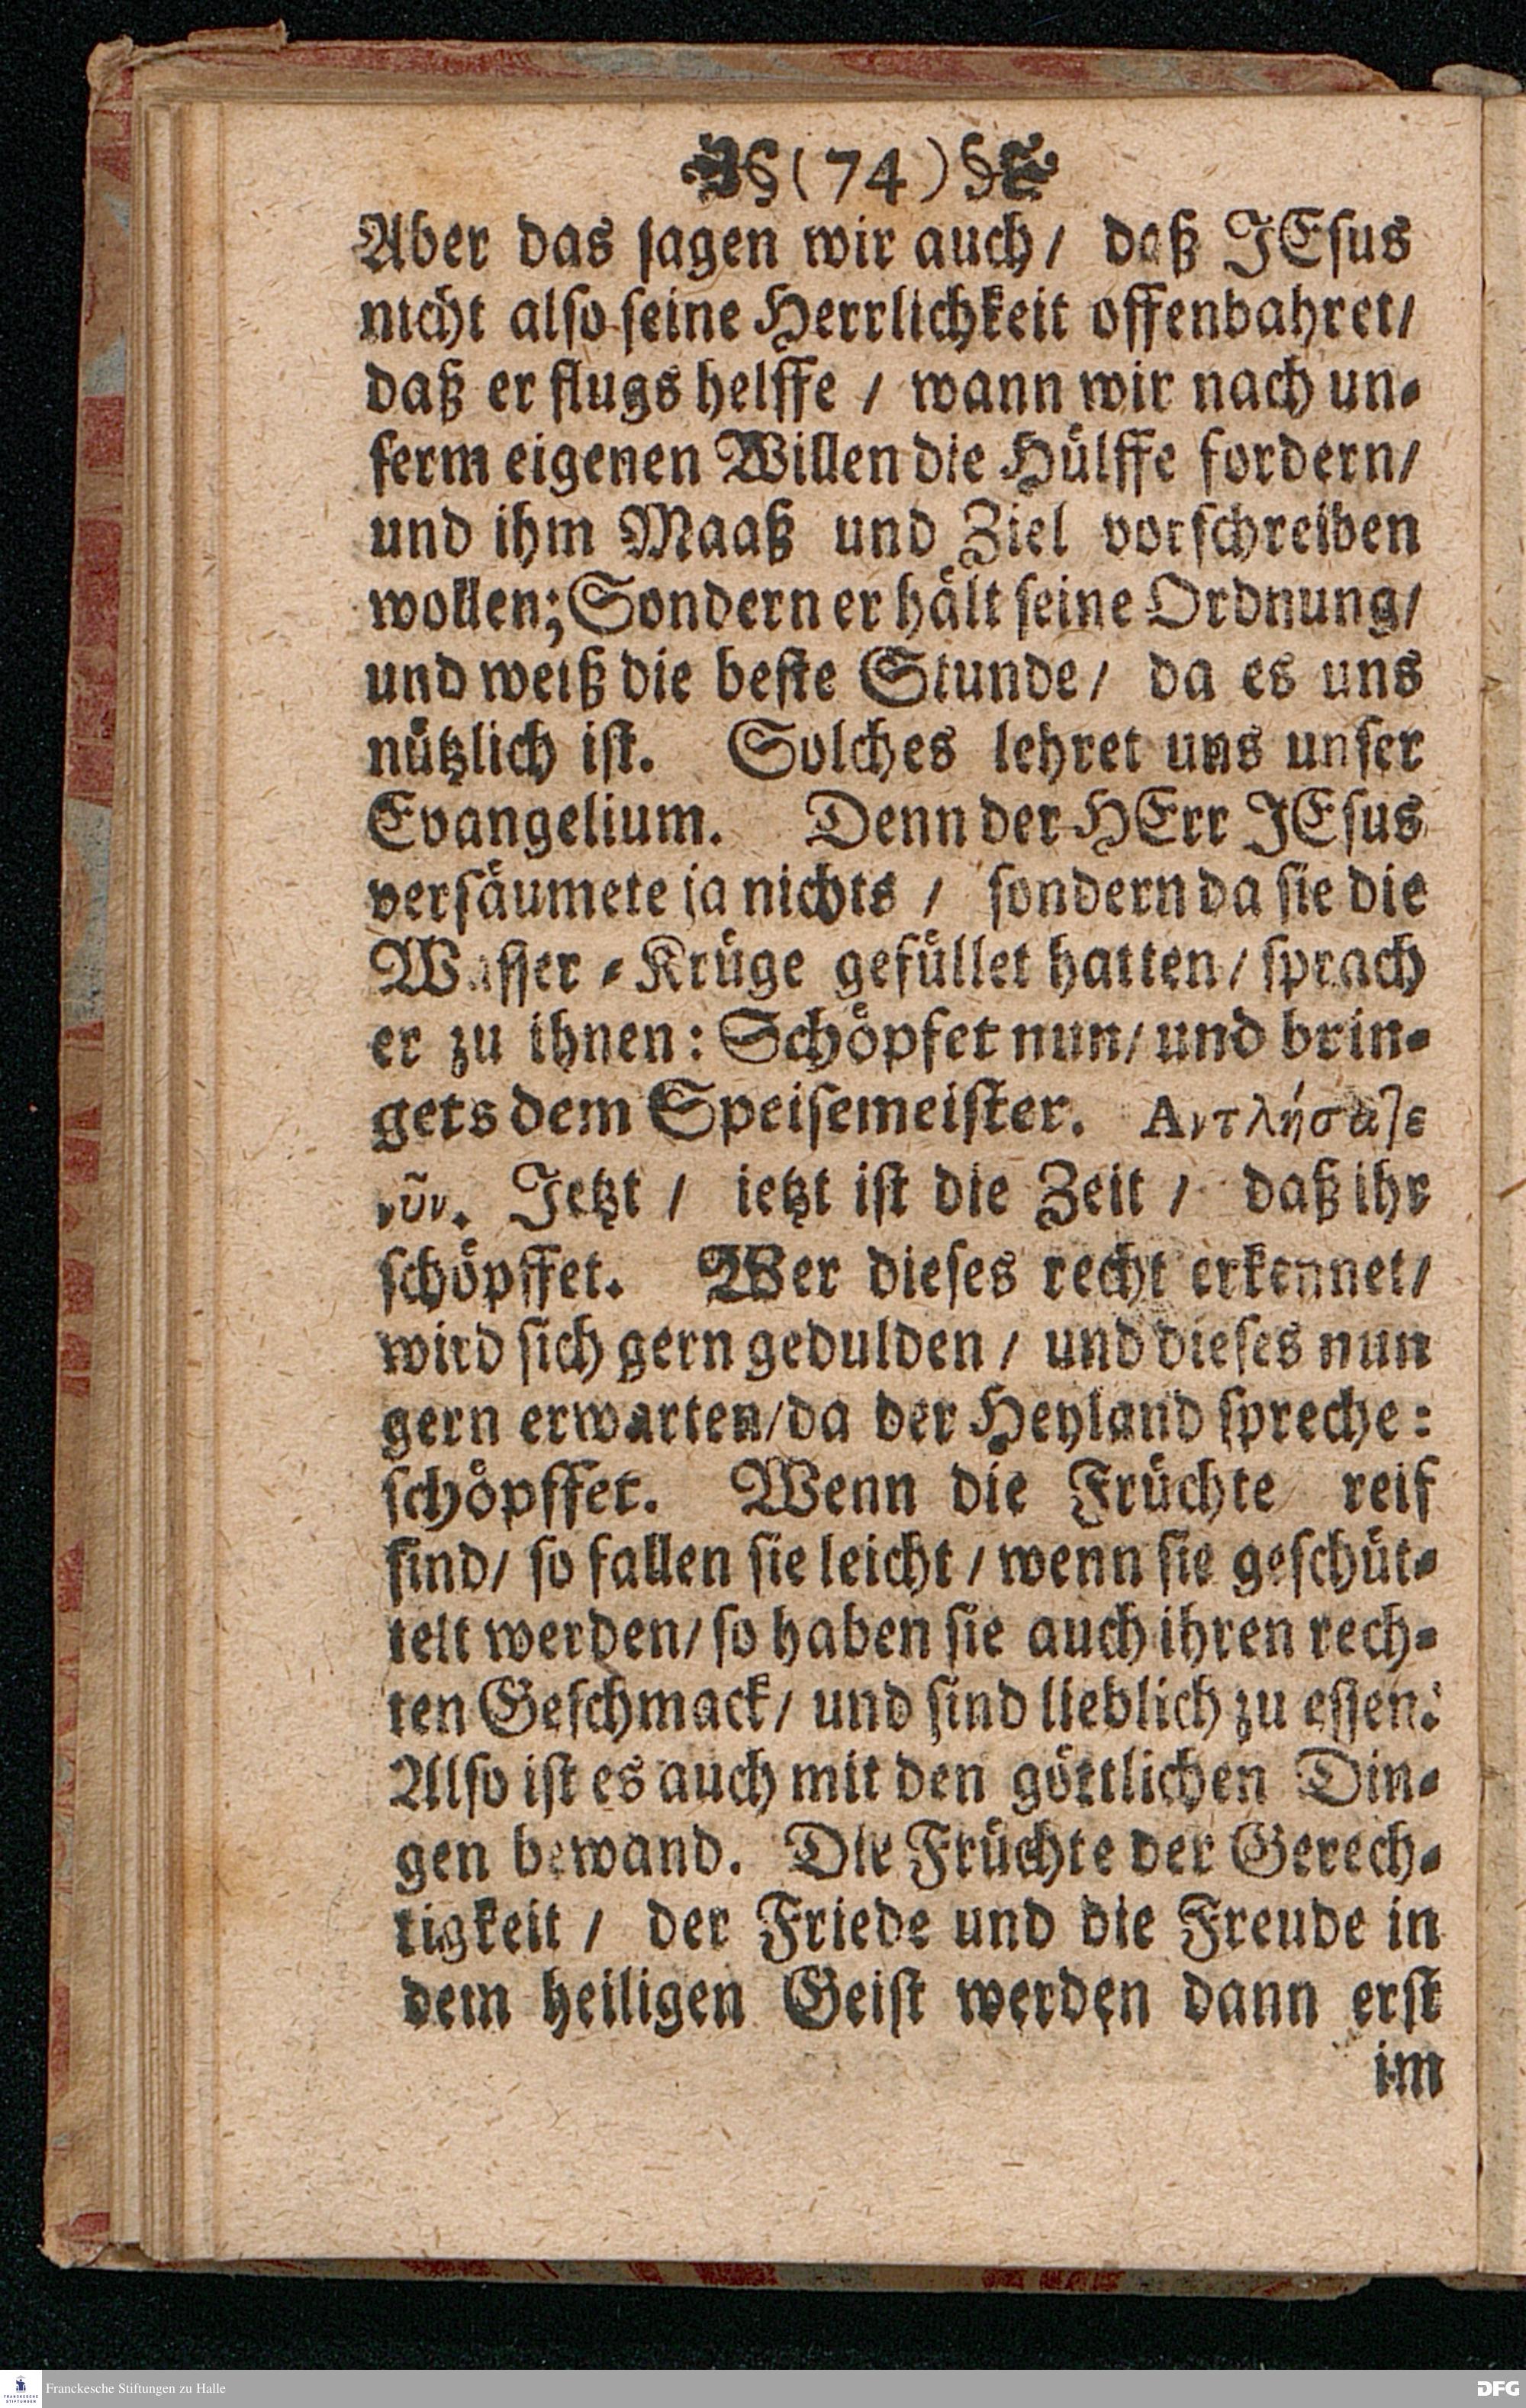 §(74)§
Aber das sagen wir auch/ daß JEsus
nicht also seine Herrlichkeit offenbahret/
daß er flugs helffe / wann wir nach un-
serm eigenen Willen die Hülffe fordern/
und ihm Maaß und Ziel vorschreiben
wollen; Sondern er hält seine Ordnung/
und weiß die beste Stunde/ da es uns
nützlich ist. Solches lehret uns unser
Evangelium. Denn der HErr JEsus
versäumete ja nichts / sondern da sie die
Wasser-Krüge gefüllet hatten/ sprach
er zu ihnen: Schöpfet nun/ und brin-
gets dem Speisemeister. Αντλήσατε
νῦν. Jetzt / ietzt ist die Zeit / daß ihr
schöpffet. Wer dieses recht erkennet/
wird sich gern gedulden / und dieses nun
gern erwarten/da der Heyland spreche:
schöpffet. Wenn die Früchte reif
sind/ so fallen sie leicht / wenn sie geschüt-
telt werden/ so haben sie auch ihren rech-
ten Geschmack/ und sind lieblich zu essen:
Also ist es auch mit den göttlichen Din-
gen bewand. Die Früchte der Gerech-
tigkeit / der Friede und die Freude in
dem heiligen Geist werden dann erst
im
FRANCKESCHE
STIFTUNGEN
Franckesche Stiftungen zu Halle
DFG